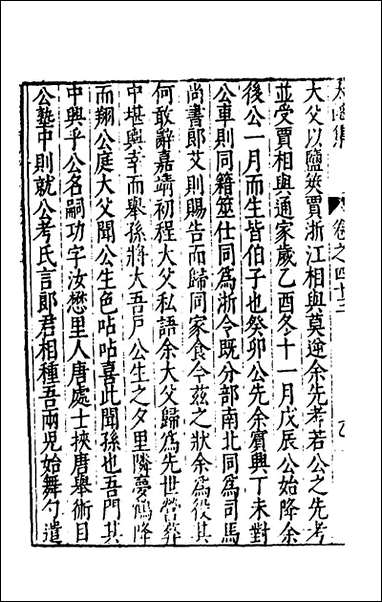 太函集
卷之四十三
大父以鹽筴賈浙江相與莫逆余先考若公之先考
並受賈相與通家歲乙酉冬十一月戊辰公始降余
後公一月而生皆伯子也癸卯公先余賓興丁未對
公車則同籍筮仕同爲浙令既分部南北同爲司馬
尚書郎艾則賜告而歸同家食今茲之狀余爲役其
何敢辭嘉靖初程大父私語余大父歸爲先世營葬
中堪輿幸而舉孫將大吾戶公生之夕里隣夢鶴降
而翔公庭大父聞公生色咕咕喜此聞孫也吾門其
中興乎公名嗣功字汝懋里人唐處士挾唐舉術目
公藝中則就公考氏言郎君相種吾兩兒始舞勺遣